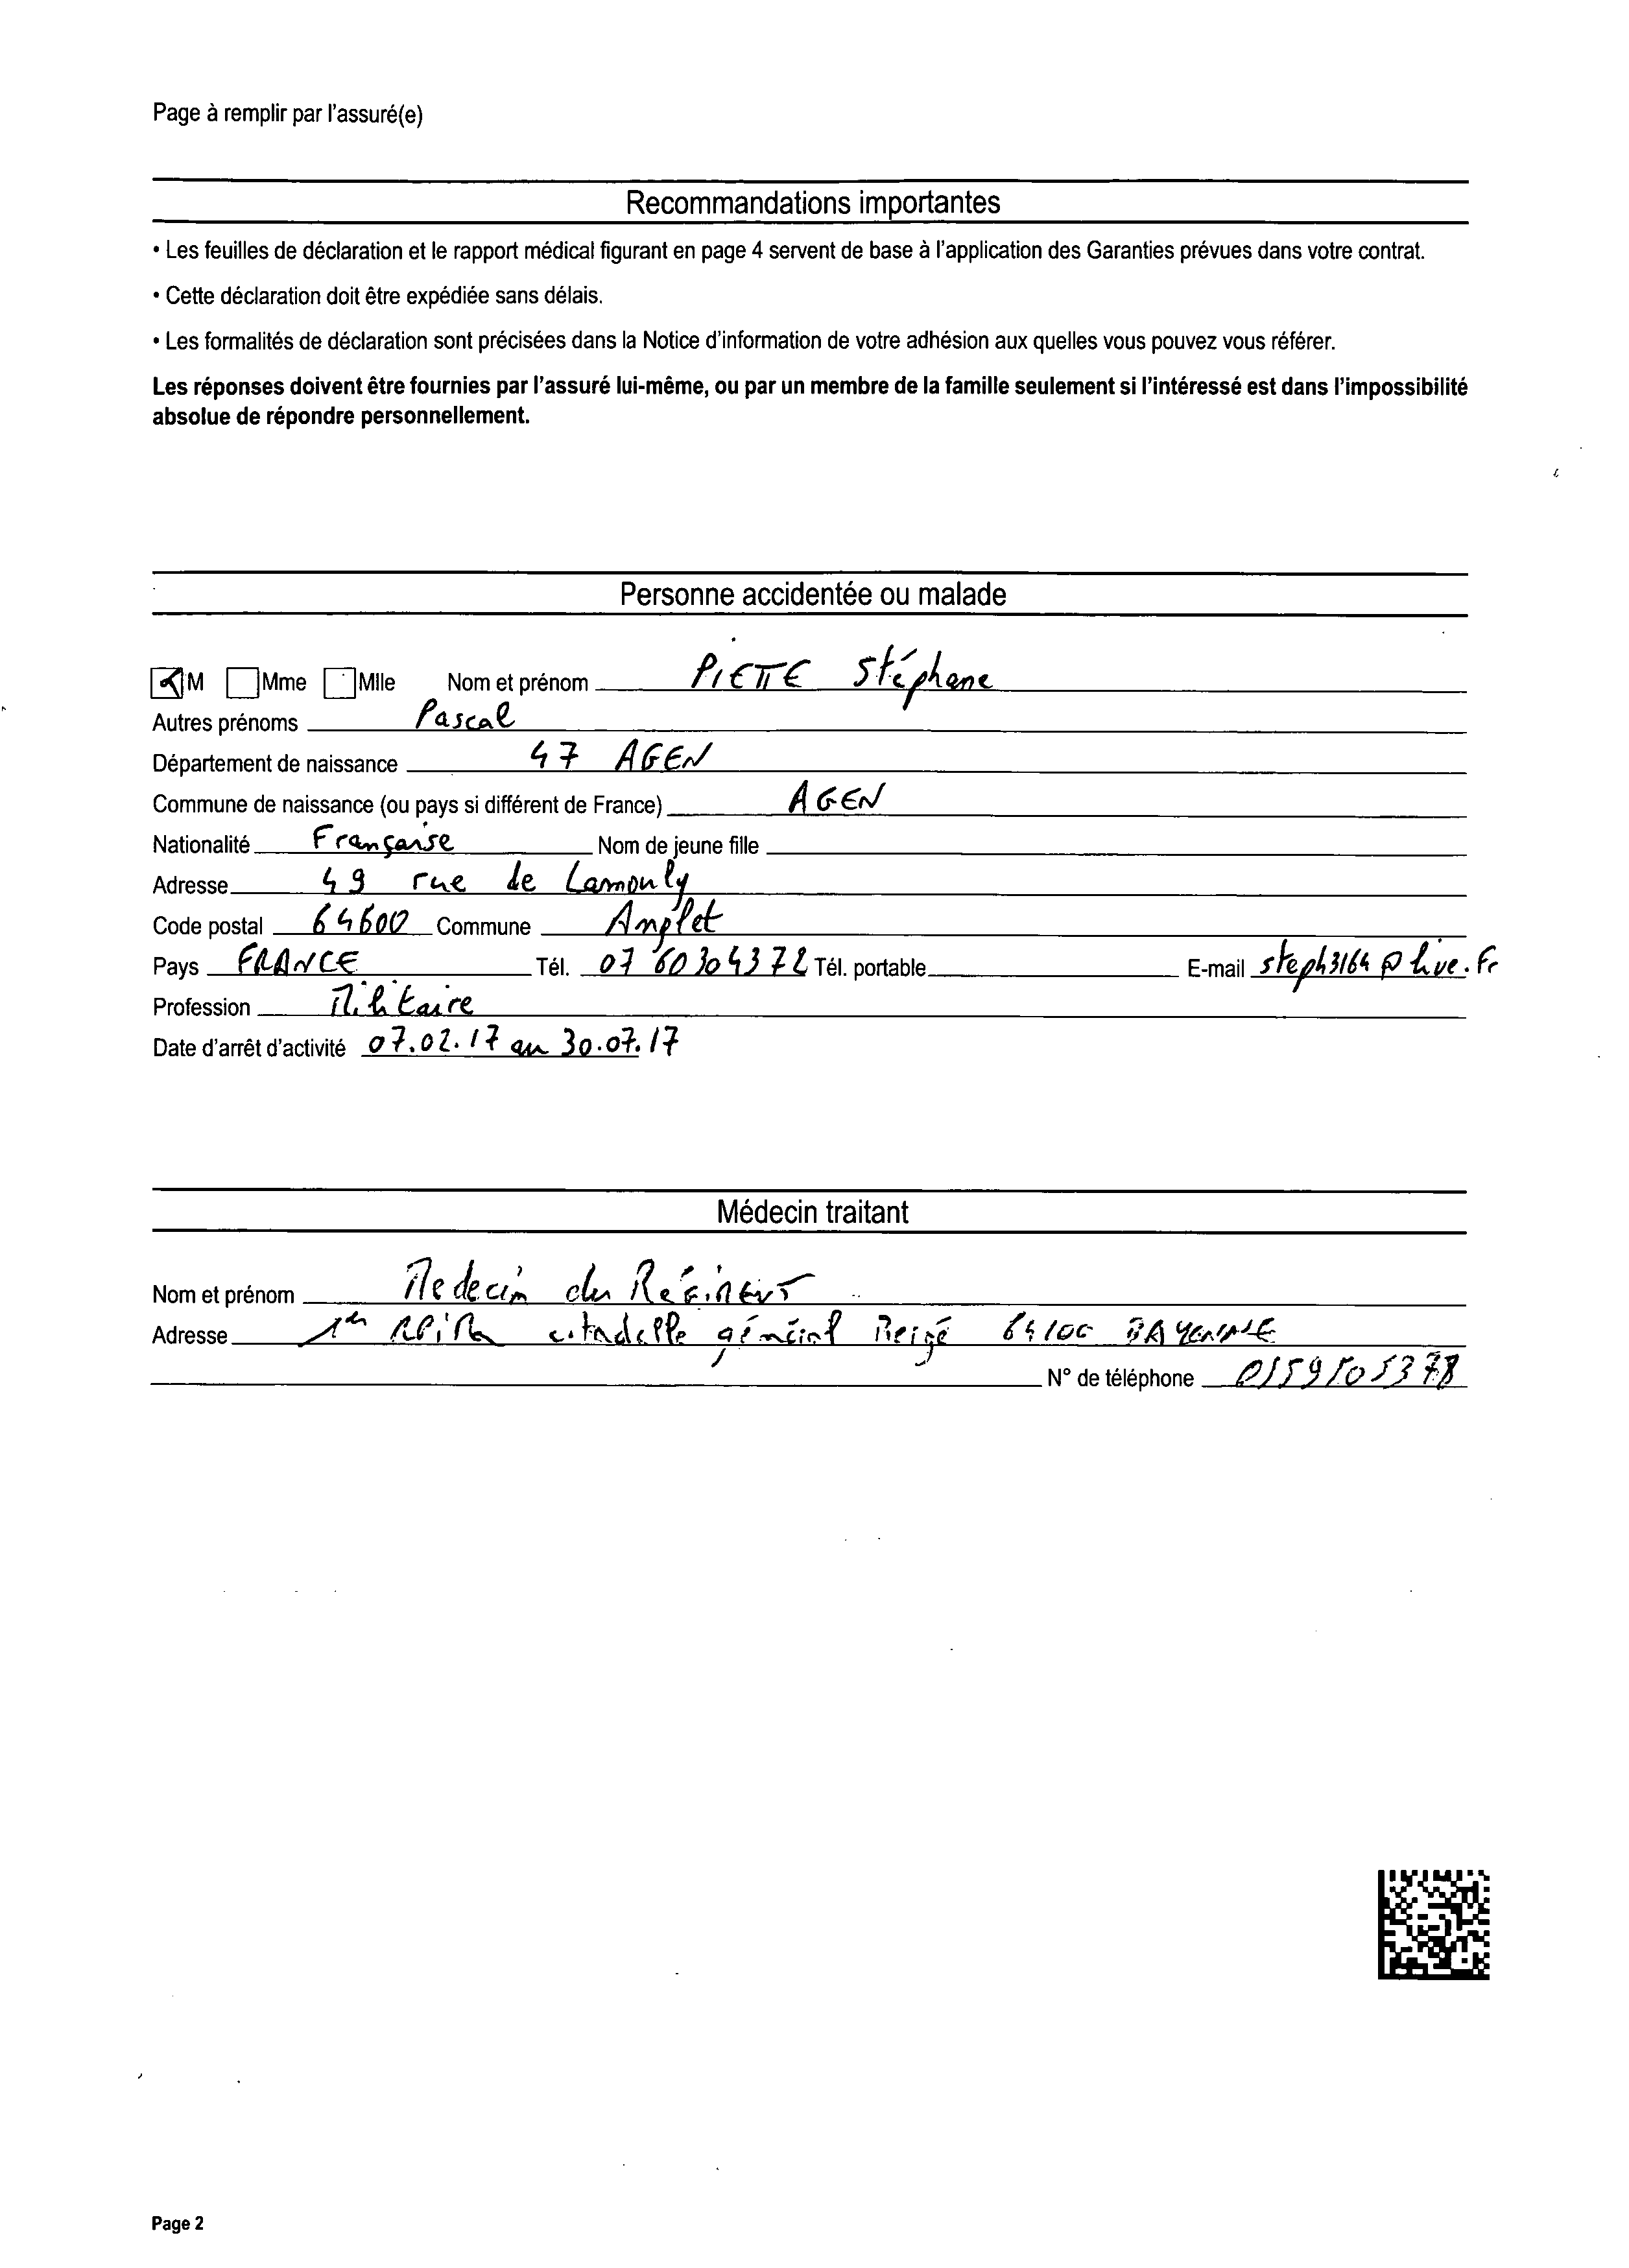 Page à remplir par l'assuré(e)
Recommandations importantes
• Les feuilles de déclaration et le rapport médical figurant en page 4 servent de base à l'application des Garanties prévues dans votre contrat.
• Cette déclaration doit être expédiée sans délais.
• Les formalités de déclaration sont précisées dans la Notice d'information de votre adhésion aux quelles vous pouvez vous référer.
Les réponses doivent être fournies par l'assuré lui-même, ou par un membre de la famille seulement si l'intéressé est dans l'impossibilité
absolue de répondre personnellement.
Personne accidentée ou malade
M Mme Mlle Nom et prénom PIETTE Stéphane
Autres prénoms Pascal
Département de naissance 47 AGEN
Commune de naissance (ou pays si différent de France) AGEN
Nationalité Française Nom de jeune fille
Adresse 49 rue de Lamouly
Code postal 64600 Commune Anglet
Pays FRANCE Tél. 07 60 30 43 72 Tél. portable E-mail steph3164@live.fr
Profession Militaire
Date d'arrêt d'activité 07.02.17 au 30.07.17
Médecin traitant
Nom et prénom Medecin du Régiment
Adresse 1er RPIMa citadelle général Bergé 64100 BAYONNE
N° de téléphone 0559505378
Page 2